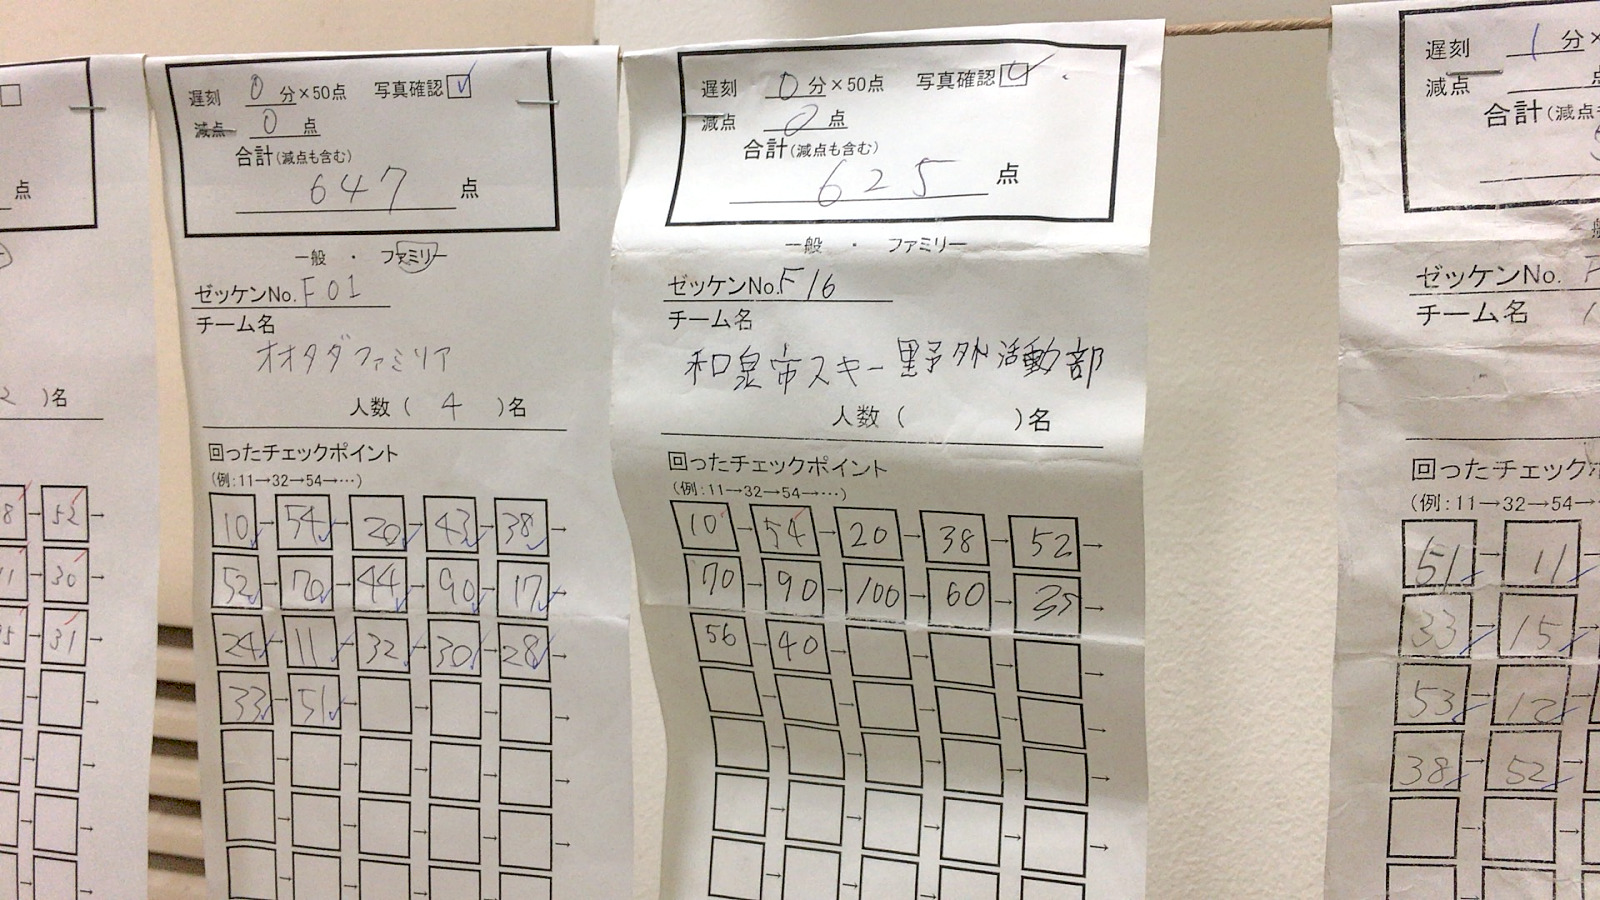 点
2 )名
8→52→
11→30→
95→31→
遅刻 0 分×50点 写真確認☑
減点 0 点
合計(減点も含む)
647 点
一般 ・ ファミリー
ゼッケンNo. F01
チーム名
オオタダファミリア
人数( 4 )名
回ったチェックポイント
(例:11→32→54→…)
10→54→20→43→38→
52→70→44→90→17→
24→11→32→30→28→
33→51→
遅刻 0 分×50点 写真確認☑
減点 0 点
合計(減点も含む)
625 点
一般 ・ ファミリー
ゼッケンNo. F16
チーム名
和泉市スキー野外活動部
人数( )名
回ったチェックポイント
(例:11→32→54→…)
10→54→20→38→52→
70→90→100→60→35→
56→40→
遅刻 1 分×
減点
合計(減点も
ゼッケンNo. F
チーム名
回ったチェックポ
(例:11→32→54→
51→11→
33→15→
53→12→
38→52→